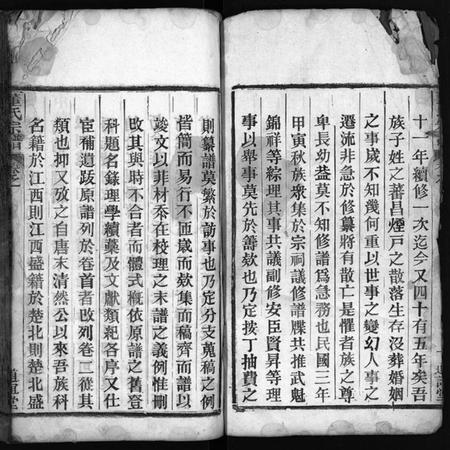 十一年續修一次迄今又四十有五年矣吾
族子姓之蕃昌煙戶之散落生存沒葬婚姻
之事歲不知幾何重以世事之變幻人事之
遷流非急於修纂將有散亡是懼者族之尊
卑長幼葢莫不知修譜爲急務也民國三年
甲寅秋族衆集於宗祠議修譜牒共推武魁
錦祥等綜理其事共議副修安臣賢昇等理
事以舉事莫先於籌欵也乃定接丁抽費之
則纂譜莫繁於勘事也乃定分支蒐稿之例
皆簡而易行不匝歲而欵集而稿齊而譜以
竣文以非材忝在校理之末譜之義例惟刪
改其與時不合者而體式概依原譜之舊登
科題名錄理學續藥及文獻類紀各序又仕
宦補遺䟦原譜列於卷首者改列卷一從其
類也抑又攷之自唐末清然公以來吾族科
名籍於江西則江西盛籍於楚北則楚北盛
氏宗譜